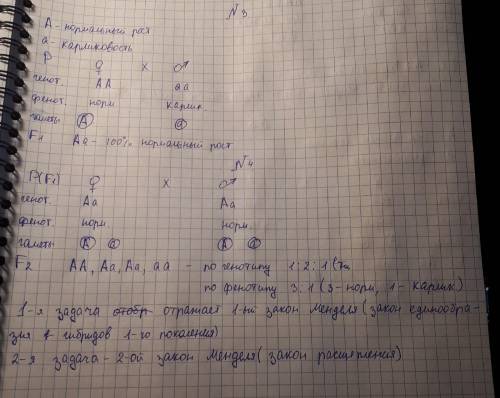 N 3
А - нормальный рост
а - карликовость
Р ♀ х ♂
генот. АА аа
фенот. норм. карлик.
гаметы А а
F1 Аа - 100% нормальный рост
N4
Р(F1) ♀ х ♂
генот. Аа Аа
фенот. норм. норм.
гаметы А а А а
F2 АА, Аа, Аа, аа - по генотипу 1:2:1
по фенотипу 3:1 (3-норм, 1- карлик)
1-я задача отражает 1-ый закон Менделя (закон единообра-
зия гибридов 1-го поколения)
2-я задача - 2-ой закон Менделя (закон расщепления)